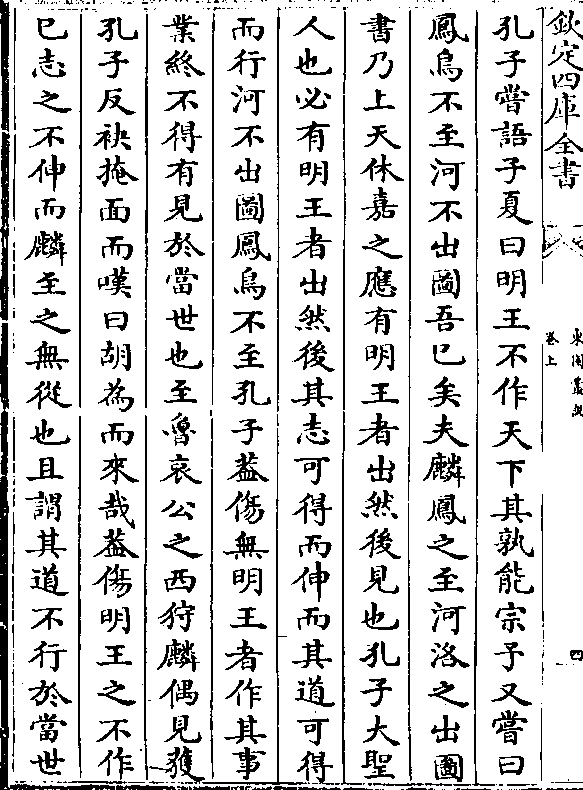 欽定四庫全書
卷上
四
孔子嘗語子夏曰明王不作天下其孰能宗予又嘗曰
鳳鳥不至河不出圖吾已矣夫麟鳳之至河洛之出圖
書乃上天休嘉之應有明王者出然後見也孔子大聖
人也必有明王者出然後其志可得而伸而其道可得
而行河不出圖鳳鳥不至孔子葢傷無明王者作其事
業終不得有見於當世也至魯哀公之西狩麟偶見獲
孔子反袂掩面而嘆曰胡為而來哉葢傷明王之不作
已志之不伸而麟至之無從也且謂其道不行於當世